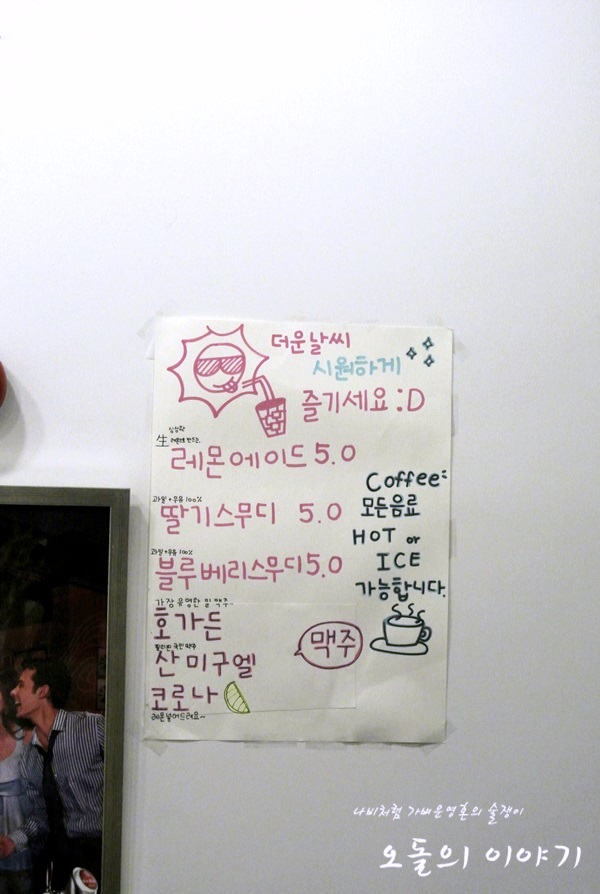 더운날씨
시원하게
즐기세요 :D
生 레몬으로 만드는
레몬에이드 5.0
과일+우유 100%
딸기스무디 5.0
과일+우유 100%
블루베리스무디 5.0
Coffee:
모든음료
HOT or
ICE
가능합니다.
가장 유명한 밀 맥주
호가든
필리핀 국민 맥주
산미구엘
코로나
레몬넣어드려요~
맥주
나비처럼 가벼운영혼의 술쟁이
오돌의 이야기